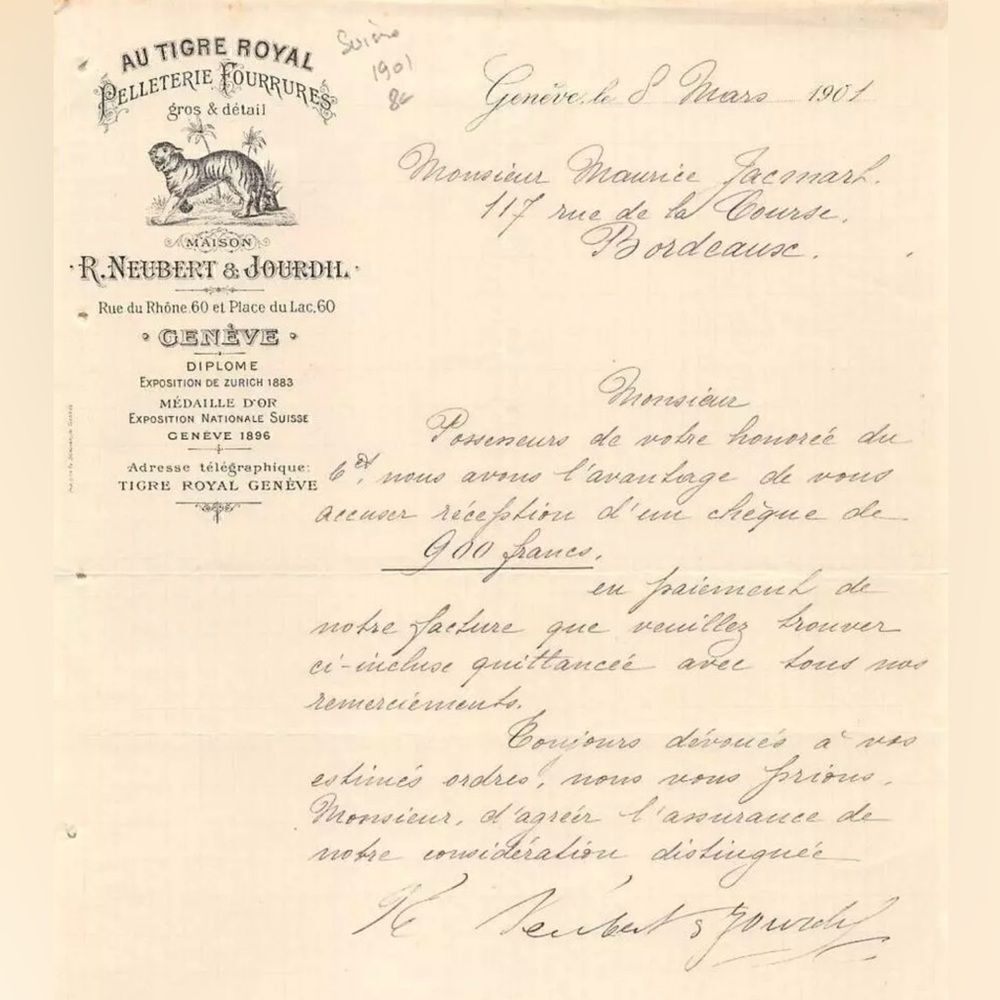 AU TIGRE ROYAL
PELLETERIE FOURRURES
gros & détail
MAISON
R. NEUBERT & JOURDIL
Rue du Rhône.60 et Place du Lac.60
GENÈVE
DIPLOME
EXPOSITION DE ZURICH 1883
MÉDAILLE D'OR
EXPOSITION NATIONALE SUISSE
GENÈVE 1896
Adresse télégraphique:
TIGRE ROYAL GENÈVE
1901
Genève, le 8 Mars 1901
Monsieur Maurice Jacmart.
117 rue de la Course.
Bordeaux.
Monsieur
Possesseurs de votre honorée du
6 ct, nous avons l'avantage de vous
accuser réception d'un chèque de
900 francs.
en paiement de
notre facture que veuillez trouver
ci-incluse quittancée avec tous nos
remerciements.
Toujours dévoués à vos
estimés ordres, nous vous prions,
Monsieur, d'agréer l'assurance de
notre considération distinguée
R Neubert & Jourdil